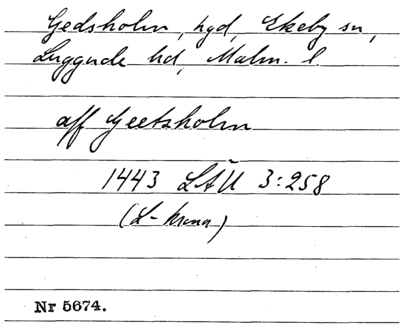 Gedsholm, hgd, Ekeby sn,
Luggude hd, Malm. l.
aff Geetzholm
1443 LÄU 3:258
(L-krona)
Nr 5674.